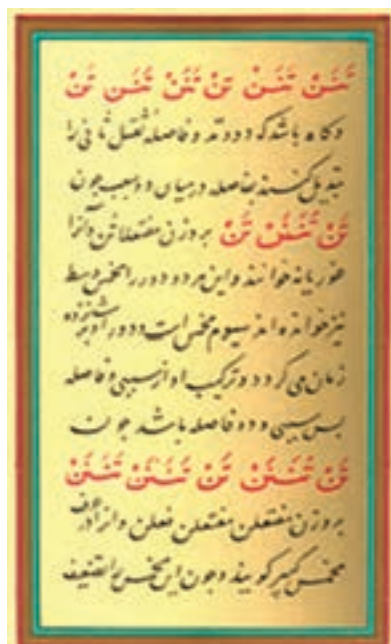 تَنَنْ تَنَنْ تَنْ تَنَنْ تَنَنْ تَنْ
و گاه باشد که دو وتد و فاصله ثقیل ثانی را
تبدیل کنند بفاصله در میان و دو سبب چون
تَنْ تَنَنَنْ تَنْ بر وزن مفتعلاتن و آنرا
خوانند و این هر دو دور را مخمس وسط
نیز خوانده اند سیوم مخمس است و دور او بر شانزده
زمان می گردد و ترکیب او از سببی و فاصله
پس سببی و دو فاصله باشد چون
تَنْ تَنَنَنْ تَنْ تَنَنَنْ تَنَنَنْ
بر وزن مفتعلن مفتعلن فعلن و از
مخمس کبیر گویند و چون این مخمس را تضعیف